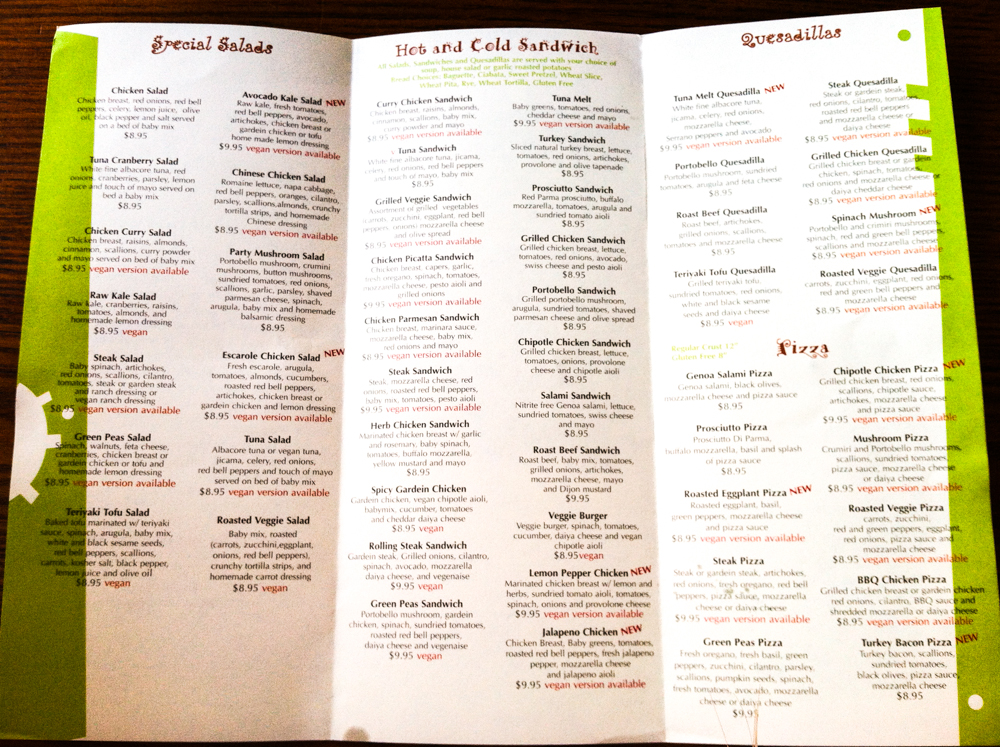 Special Salads
Chicken Salad
Chicken breast, red onions, red bell
peppers, celery, lemon juice, olive
oil, black pepper and salt served
on a bed of baby mix
$8.95
Tuna Cranberry Salad
White fine albacore tuna, red
onions, cranberries, parsley, lemon
juice and touch of mayo served on
bed a baby mix
$8.95
Chicken Curry Salad
Chicken breast, raisins, almonds,
cinnamon, scallions, curry powder
and mayo served on bed of baby mix
$8.95 vegan version available
Raw Kale Salad
Raw kale, cranberries, raisins,
tomatoes, almonds, and
homemade lemon dressing
$8.95 vegan
Steak Salad
Baby spinach, artichokes,
red onions, scallions, cilantro,
tomatoes, steak or garden steak
and ranch dressing or
vegan ranch dressing
$8.95 vegan version available
Green Peas Salad
Spinach, walnuts, feta cheese,
cranberries, chicken breast or
gardein chicken or tofu and
homemade lemon dressing
$8.95 vegan version available
Teriyaki Tofu Salad
Baked tofu marinated w/ teriyaki
sauce, spinach, arugula, baby mix,
white and black sesame seeds,
red bell peppers, scallions,
carrots, kosher salt, black pepper,
lemon juice and olive oil
$8.95 vegan
Avocado Kale Salad NEW
Raw kale, fresh tomatoes,
red bell peppers, avocado,
artichokes, chicken breast or
gardein chicken or tofu
home made lemon dressing
$9.95 vegan version available
Chinese Chicken Salad
Romaine lettuce, napa cabbage,
red bell peppers, oranges, cilantro,
parsley, scallions,almonds, crunchy
tortilla strips, and homemade
Chinese dressing
$8.95 vegan version available
Party Mushroom Salad
Portobello mushroom, crumini
mushrooms, button mushrooms,
sundried tomatoes, red onions,
scallions, garlic, parsley, shaved
parmesan cheese, spinach,
arugula, baby mix and homemade
balsamic dressing
$8.95
Escarole Chicken Salad NEW
Fresh escarole, arugula,
tomatoes, almonds, cucumbers,
roasted red bell peppers,
artichokes, chicken breast or
gardein chicken and lemon dressing
$8.95 vegan version available
Tuna Salad
Albacore tuna or vegan tuna,
jicama, celery, red onions,
red bell peppers and touch of mayo
served on bed of baby mix
$8.95 vegan version available
Roasted Veggie Salad
Baby mix, roasted
(carrots, zucchini,eggplant,
onions, red bell peppers),
crunchy tortilla strips, and
homemade carrot dressing
$8.95 vegan
Hot and Cold Sandwich
All Salads, Sandwiches and Quesadillas are served with your choice of
soup, house salad or garlic roasted potatoes
Bread Choices: Baguette, Ciabata, Sweet Pretzel, Wheat Slice,
Wheat Pita, Rye, Wheat Tortilla, Gluten Free
Curry Chicken Sandwich
Chicken breast, raisins, almonds,
cinnamon, scallions, baby mix,
curry powder and mayo
$8.95 vegan version available
Tuna Sandwich
White fine albacore tuna, jicama,
celery, red onions, red bell peppers
and touch of mayo, baby mix
$8.95
Grilled Veggie Sandwich
Assortment of grilled vegetables
(carrots, zucchini, eggplant, red bell
peppers, onions) mozzarella cheese
and olive spread
$8.95 vegan version available
Chicken Picatta Sandwich
Chicken breast, capers, garlic,
fresh oregano, spinach, tomatoes,
mozzarella cheese, pesto aioli and
grilled onions
$9.95 vegan version available
Chicken Parmesan Sandwich
Chicken breast, marinara sauce,
mozzarella cheese, baby mix,
red onions and mayo
$8.95 vegan version available
Steak Sandwich
Steak, mozzarella cheese, red
onions, roasted red bell peppers,
baby mix, tomatoes, pesto aioli
$9.95 vegan version available
Herb Chicken Sandwich
Marinated chicken breast w/ garlic
and rosemary, baby spinach,
tomatoes, buffalo mozzarella,
yellow mustard and mayo
$8.95
Spicy Gardein Chicken
Gardein chicken, vegan chipotle aioli,
babymix, cucumber, tomatoes
and cheddar daiya cheese
$8.95 vegan
Rolling Steak Sandwich
Gardein steak, Grilled onions, cilantro,
spinach, avocado, mozzarella
daiya cheese, and vegenaise
$9.95 vegan
Green Peas Sandwich
Portobello mushroom, gardein
chicken, spinach, sundried tomatoes,
roasted red bell peppers,
daiya cheese and vegenaise
$9.95 vegan
Tuna Melt
Baby greens, tomatoes, red onions,
cheddar cheese and mayo
$9.95 vegan version available
Turkey Sandwich
Sliced natural turkey breast, lettuce,
tomatoes, red onions, artichokes,
provolone and olive tapenade
$8.95
Prosciutto Sandwich
Red Parma prosciutto, buffalo
mozzarella, tomatoes, arugula and
sundried tomato aioli
$8.95
Grilled Chicken Sandwich
Grilled chicken breast, lettuce,
tomatoes, red onions, avocado,
swiss cheese and pesto aioli
$8.95
Portobello Sandwich
Grilled portobello mushroom,
arugula, sundried tomatoes, shaved
parmesan cheese and olive spread
$8.95
Chipotle Chicken Sandwich
Grilled chicken breast, lettuce,
tomatoes, onions, provolone
cheese and chipotle aioli
$8.95
Salami Sandwich
Nitrite free Genoa salami, lettuce,
sundried tomatoes, swiss cheese
and mayo
$8.95
Roast Beef Sandwich
Roast beef, baby mix, tomatoes,
grilled onions, artichokes,
mozzarella cheese, mayo
and Dijon mustard
$9.95
Veggie Burger
Veggie burger, spinach, tomatoes,
cucumber, daiya cheese and vegan
chipotle aioli
$8.95vegan
Lemon Pepper Chicken NEW
Marinated chicken breast w/ lemon and
herbs, sundried tomato aioli, tomatoes,
spinach, onions and provolone cheese
$9.95 vegan version available
Jalapeno Chicken NEW
Chicken Breast, Baby greens, tomatoes,
roasted red bell peppers, fresh jalapeno
pepper, mozzarella cheese
and jalapeno aioli
$9.95 vegan version available
Quesadillas
Tuna Melt Quesadilla NEW
White fine albacore tuna,
jicama, celery, red onions,
mozzarella cheese,
Serrano peppers and avocado
$9.95 vegan version available
Portobello Quesadilla
Portobello mushroom, sundried
tomatoes, arugula and feta cheese
$8.95
Roast Beef Quesadilla
Roast beef, artichokes,
grilled onions, scallions,
tomatoes and mozzarella cheese
$8.95
Teriyaki Tofu Quesadilla
Grilled teriyaki tofu,
sundried tomatoes, red onions,
white and black sesame
seeds and daiya cheese
$8.95 vegan
Steak Quesadilla
Steak or gardein steak,
red onions, cilantro, tomatoes,
roasted red bell peppers
and mozzarella cheese or
daiya cheese
$8.95 vegan version available
Grilled Chicken Quesadilla
Grilled chicken breast or gardein
chicken, spinach, tomatoes,
red onions and mozzarella cheese or
daiya cheddar cheese
$8.95 vegan version available
Spinach Mushroom NEW
Portobello and crimin mushrooms,
spinach, red and green bell peppers,
scallions and mozzarella cheese
$8.95 vegan version available
Roasted Veggie Quesadilla
carrots, zucchini, eggplant, red onions,
red and green bell peppers and
mozzarella cheese
$8.95 vegan version available
Regular Crust 12"
Gluten Free 8"
Pizza
Genoa Salami Pizza
Genoa salami, black olives,
mozzarella cheese and pizza sauce
$8.95
Prosciutto Pizza
Prosciutto Di Parma,
buffalo mozzarella, basil and splash
of pizza sauce
$8.95
Roasted Eggplant Pizza NEW
Roasted eggplant, basil,
green peppers, mozzarella cheese
and pizza sauce
$8.95 vegan version available
Steak Pizza
Steak or gardein steak, artichokes,
red onions, fresh oregano, red bell
peppers, pizza sauce, mozzarella
cheese or daiya cheese
$9.95 vegan version available
Green Peas Pizza
Fresh oregano, fresh basil, green
peppers, zucchini, cilantro, parsley,
scallions, pumpkin seeds, spinach,
fresh tomatoes, avocado, mozzarella
cheese or daiya cheese
$9.95
Chipotle Chicken Pizza NEW
Grilled chicken breast, red onions,
scallions, chipotle sauce,
artichokes, mozzarella cheese
and pizza sauce
$9.95 vegan version available
Mushroom Pizza
Crumini and Portobello mushrooms,
scallions, sundried tomatoes,
pizza sauce, mozzarella cheese
or daiya cheese
$8.95 vegan version available
Roasted Veggie Pizza
carrots, zucchini,
red and green peppers, eggplant,
red onions, pizza sauce and
mozzarella cheese
$8.95 vegan version available
BBQ Chicken Pizza
Grilled chicken breast or gardein chicken
red onions, cilantro, BBQ sauce and
shredded mozzarella or daiya cheese
$8.95 vegan version available
Turkey Bacon Pizza NEW
Turkey bacon, scallions,
sundried tomatoes,
black olives, pizza sauce,
mozzarella cheese
$8.95